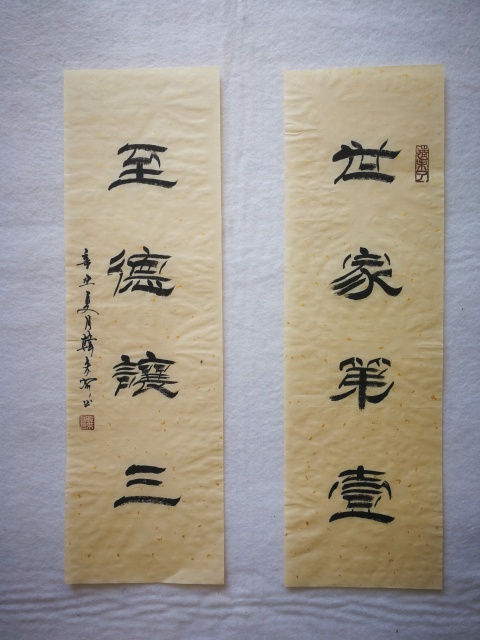 世家第壹
至德讓三
辛丑夏月韓